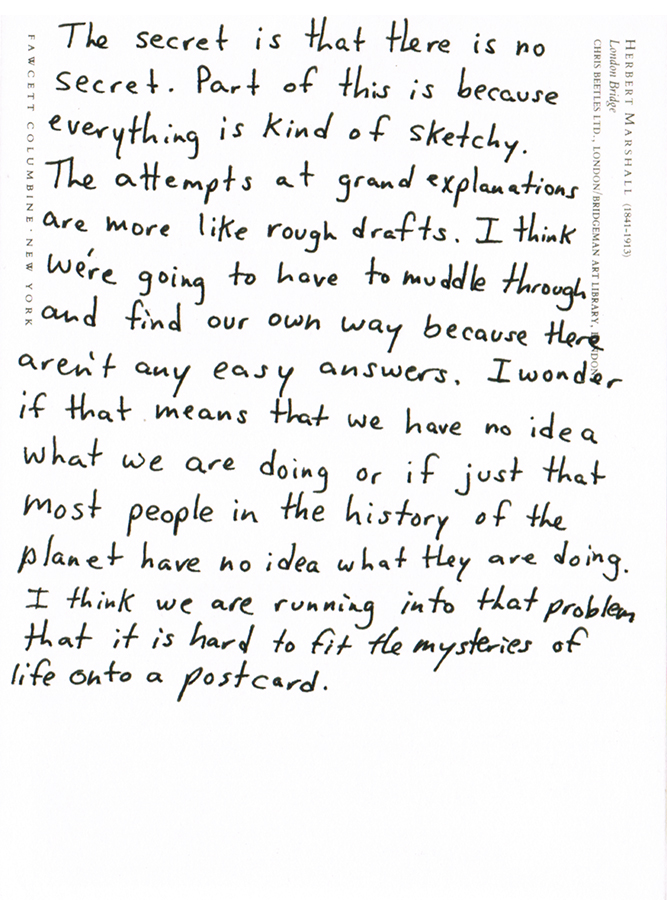 The secret is that there is no
secret. Part of this is because
everything is kind of sketchy.
The attempts at grand explanations
are more like rough drafts. I think
we're going to have to muddle through
and find our own way because there
aren't any easy answers. I wonder
if that means that we have no idea
what we are doing or if just that
most people in the history of the
planet have no idea what they are doing.
I think we are running into that problem
that it is hard to fit the mysteries of
life onto a postcard.
FAWCETT COLUMBINE · NEW YORK
HERBERT MARSHALL (1841-1913)
London Bridge
CHRIS BEETLES LTD., LONDON/BRIDGEMAN ART LIBRARY, LONDON